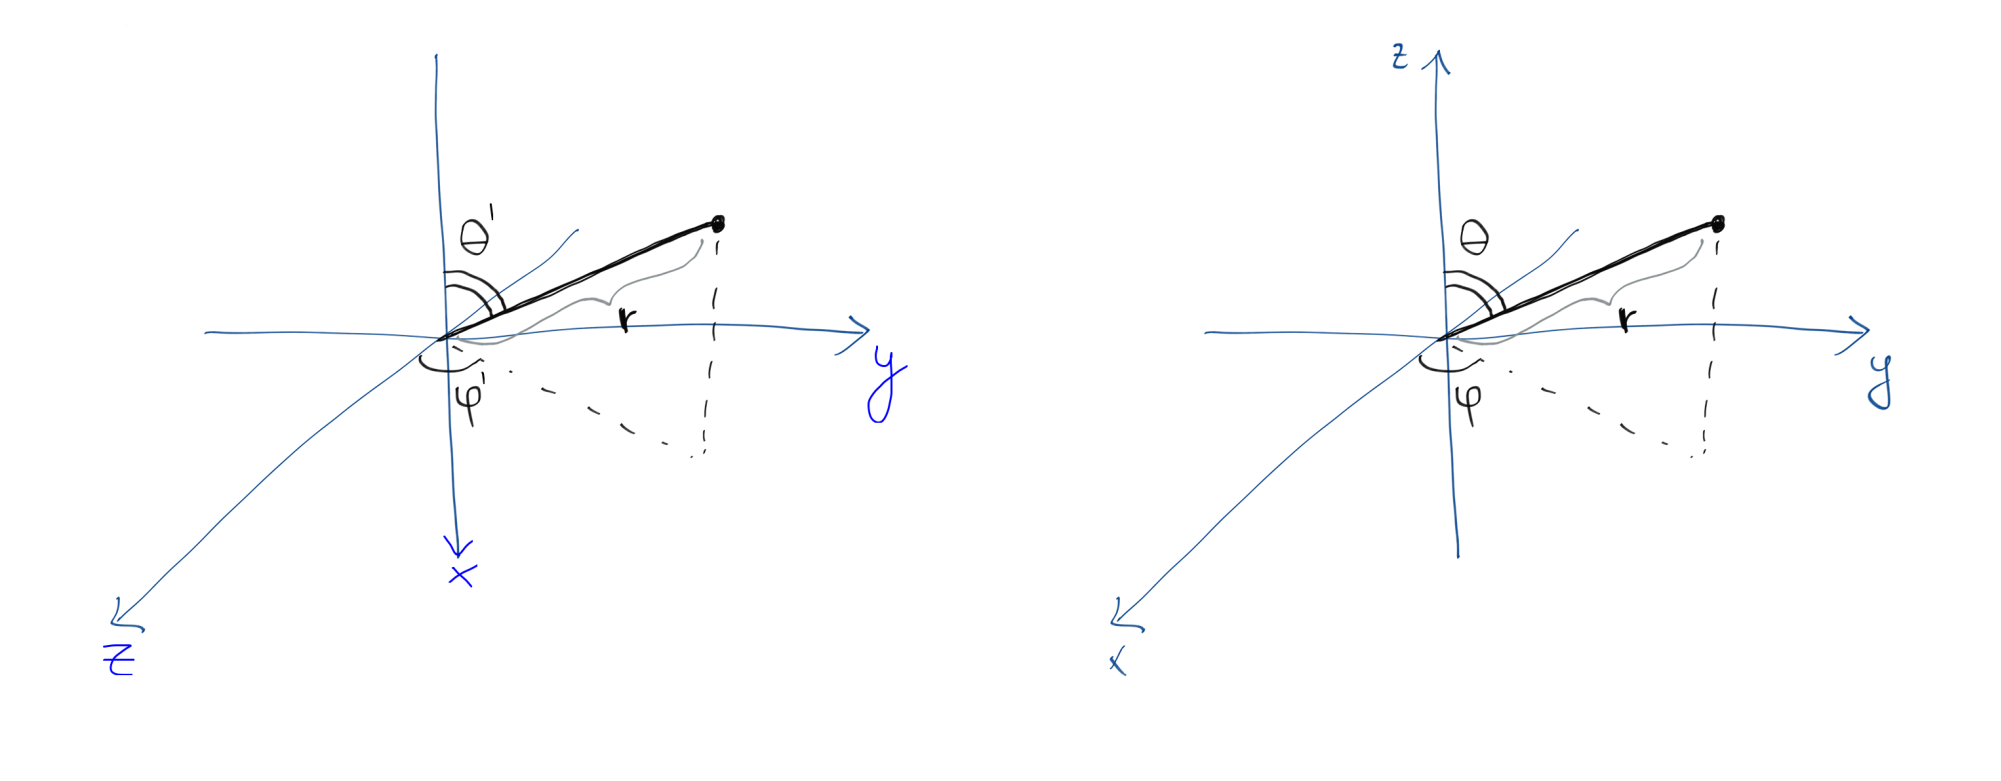 θ'
r
y
φ'
x
z
z
θ
r
y
φ
x